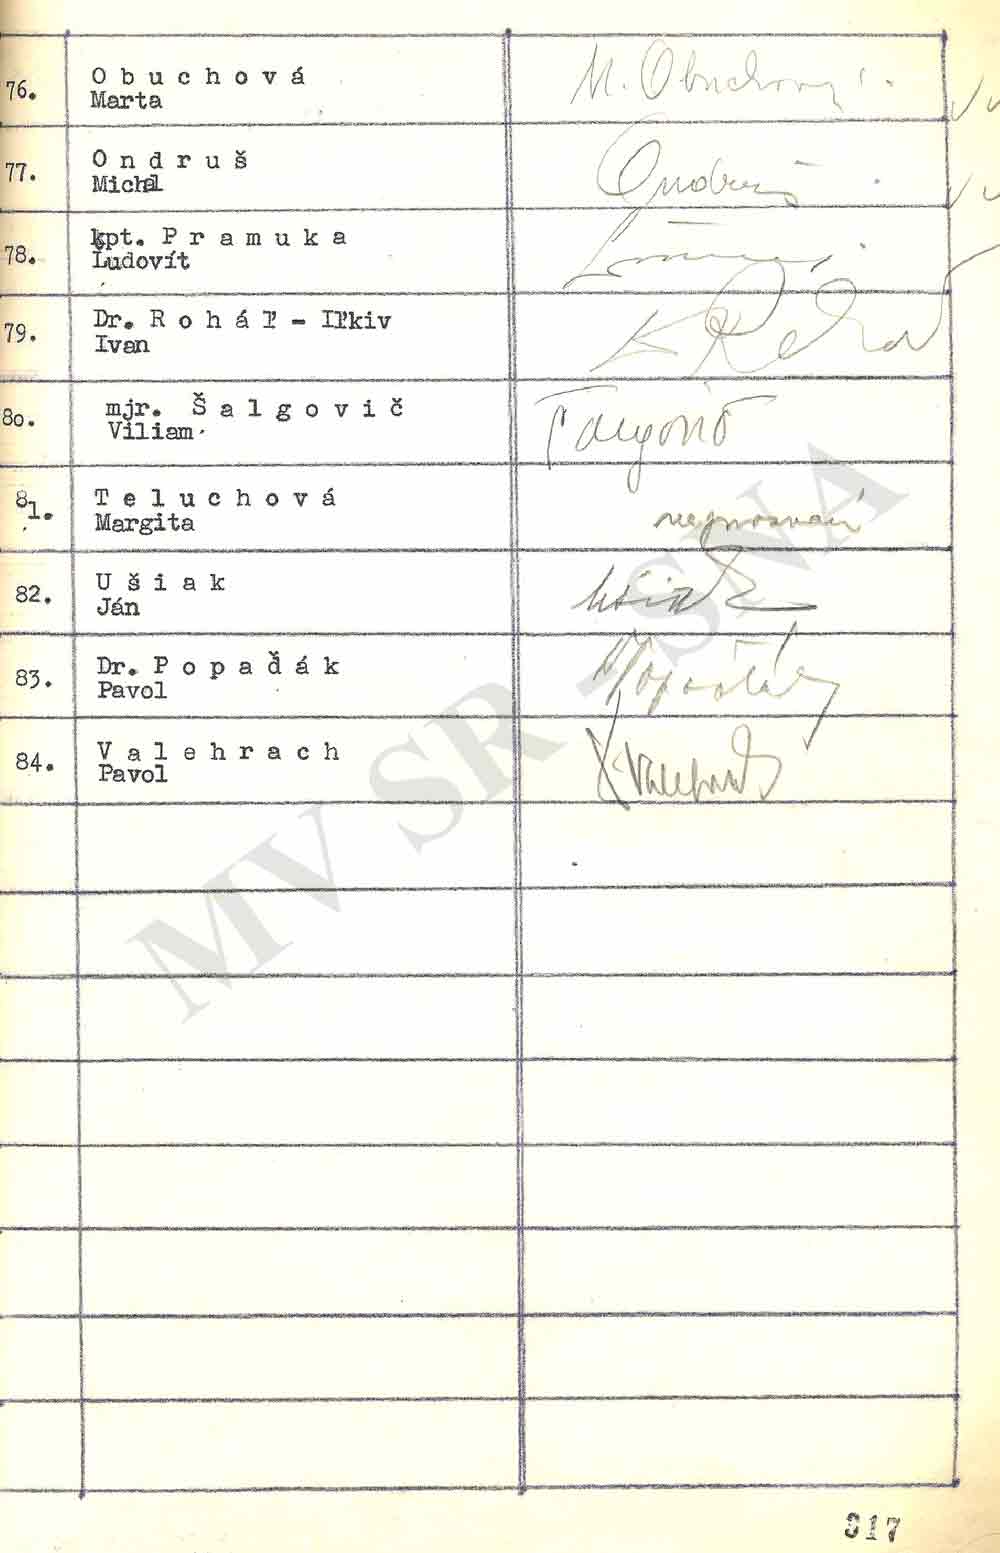 76. O b u c h o v á
Marta
M. Obuchová
77. O n d r u š
Michal
Ondruš
78. kpt. P r a m u k a
Ľudovít
79. Dr. R o h á ľ - Iľkiv
Ivan
80. mjr. Š a l g o v i č
Viliam
81. T e l u c h o v á
Margita
82. U š i a k
Ján
Ušiak
83. Dr. P o p a ď á k
Pavol
84. V a l e h r a c h
Pavol
Valehrach
MV SR - SNA
817